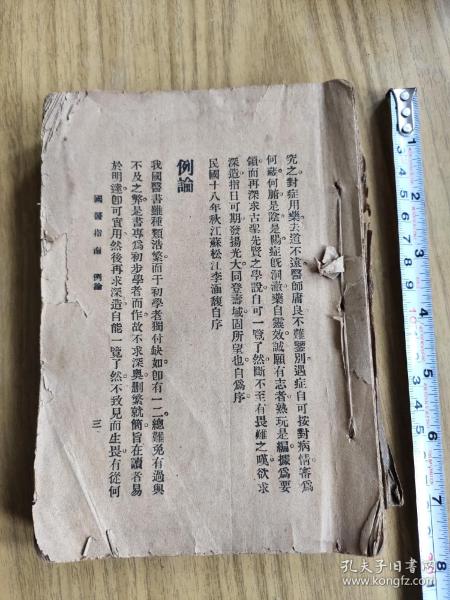 究之對症用藥去道不遠醫師庸良不難鑒別遇症自可按對病情審爲
何臟何腑是陰是陽症旣洞澈藥自靈效誠願有志者熟玩是編據爲要
領而再深求古聖先賢之學說自可一覽了然斷不至有畏難之嘆欲求
深造指日可期發揚光大同登壽域固所望也自爲序
民國十八年秋江蘇松江李涵馥自序
例論
我國醫書雖種類浩繁而于初學者獨付缺如卽有一二總難免有過與
不及之弊是書專爲初步學者而作故不求深奧删繁就簡旨在讀者易
於明瞭卽可實用然後再求深造自能一覽了然不致見而生畏有從何
國醫指南 例論 三
1 2 3 4 5 6 7 8
孔夫子旧书网
www.kongfz.com